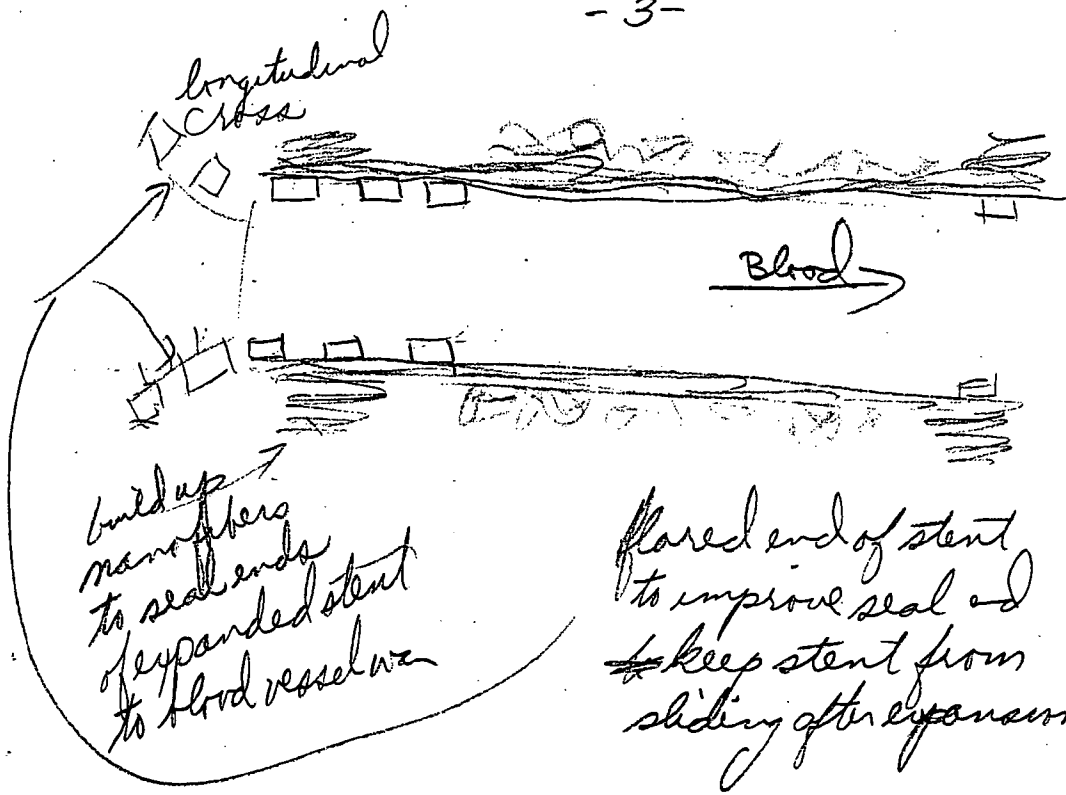 - 3-
longitudinal
cross
Blood
build up
nanofibers
to seal ends
of expanded stent
to blood vessel wa
flared end of stent
to improve seal and
keep stent from
sliding after expansion